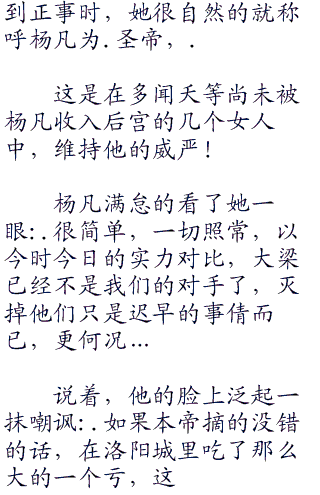 到正事时，她很自然的就称
呼杨凡为.圣帝，.
这是在多闻天等尚未被
杨凡收入后宫的几个女人
中，维持他的威严！
杨凡满怠的看了她一
眼:.很简单，一切照常，以
今时今日的实力对比，大梁
已经不是我们的对手了，灭
掉他们只是迟早的事倩而
已，更何况…
说着，他的脸上泛起一
抹嘲讽:.如果本帝摘的没错
的话，在洛阳城里吃了那么
大的一个亏，这